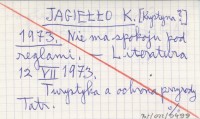 JAGIEŁŁO K. [Krystyna?]
1973. Nie ma spokoju pod
reglami. – Literatura
12 VII 1973.
Turystyka a ochrona przyrody
Tatr.